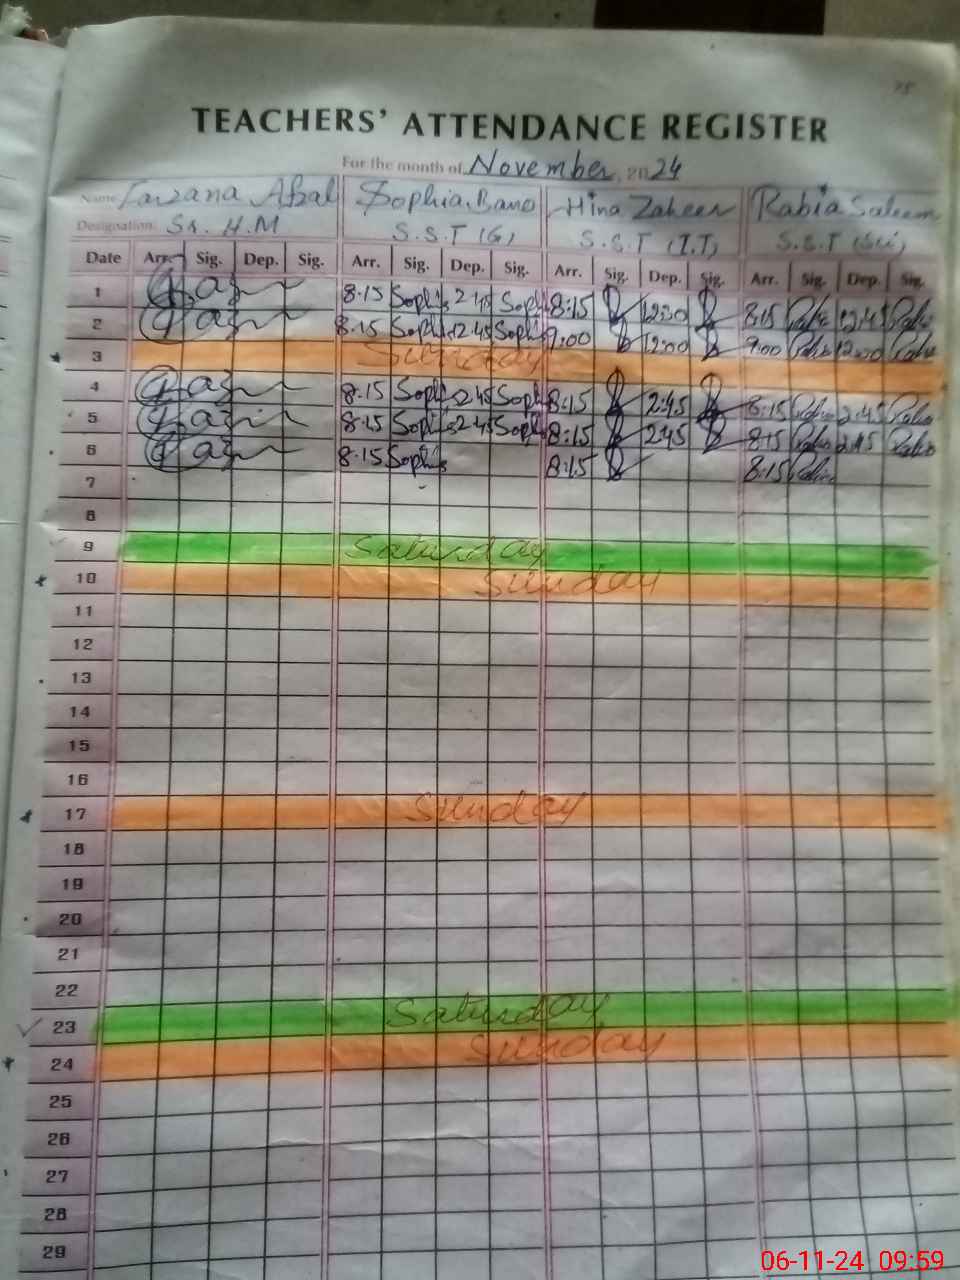 TEACHERS' ATTENDANCE REGISTER
For the month of November, 2024
Name Farzana Afzal Sophia Bano Hina Zaheer Rabia Saleem
Designation. Sr. H.M S.S.T (G) S.S.T (I.T) S.S.T (Sci)
Date Arr. Sig. Dep. Sig. Arr. Sig. Dep. Sig. Arr. Sig. Dep. Sig. Arr. Sig. Dep. Sig.
1 8.15 Soph 2 45 Soph 8:15 12:30 8:15 12:45
2 8.15 Soph 12.45 Soph 9:00 12:00 9:00 12:00
3 Sunday
4 8.15 Soph 2.45 Soph 8:15 2:45 8:15 2:45
5 8.15 Soph 2.45 Soph 8:15 2:45 8:15 2:45
6 8.15 Soph 8:15 8:15
7
8
9 Saturday
10 Sunday
11
12
13
14
15
16
17 Sunday
18
19
20
21
22
23 Saturday
24 Sunday
25
26
27
28
29
06-11-24 09:59